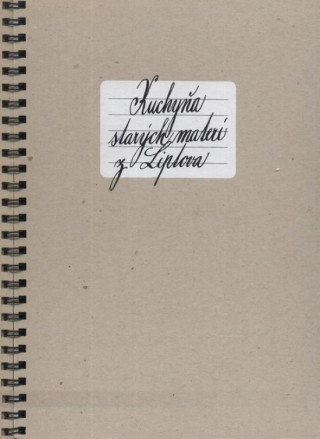 Kuchyňa
starých materí
z Liptova